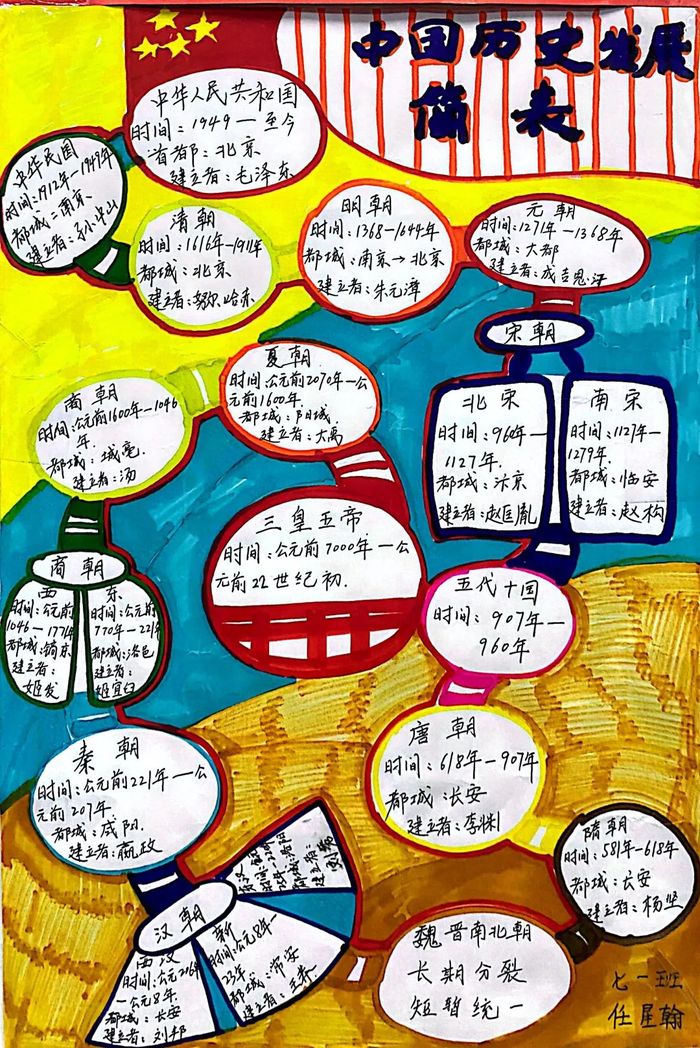 中国历史发展
简表
中华人民共和国
时间：1949—至今
首都：北京
建立者：毛泽东
中华民国
时间：1912年—1949年
都城：南京
建立者：孙中山
清朝
时间：1616年—1911年
都城：北京
建立者：努尔哈赤
明朝
时间：1368—1644年
都城：南京→北京
建立者：朱元璋
元朝
时间：1271年—1368年
都城：大都
建立者：成吉思汗
宋朝
北宋
时间：960年—
1127年.
都城：汴京
建立者：赵匡胤
南宋
时间：1127年—
1279年.
都城：临安
建立者：赵构
五代十国
时间：907年—
960年
唐朝
时间：618年—907年
都城：长安
建立者：李渊
隋朝
时间：581年—618年
都城：长安
建立者：杨坚
魏晋南北朝
长期分裂
短暂统一
夏朝
时间：公元前2070年—公
元前1600年.
都城：阳城
建立者：大禹
商朝
时间：公元前1600年—1046
年.
都城：亳.
建立者：汤
三皇五帝
时间：公元前7000年—公
元前22世纪初.
商朝
西
时间：公元前
1046—771年
都城：镐京
建立者：
姬发
东
时间：公元前
770年—221年
都城：洛邑
建立者：
姬宜臼
秦朝
时间：公元前221年—公
元前207年.
都城：咸阳.
建立者：嬴政
汉朝
西汉
时间：公元前
—公元8年.
都城：长安
建立者：刘邦
新
时间：公元8年—
23年.
都城：常安
建立者：王莽
都城：洛阳
建立者：刘秀
七一班
任星翰